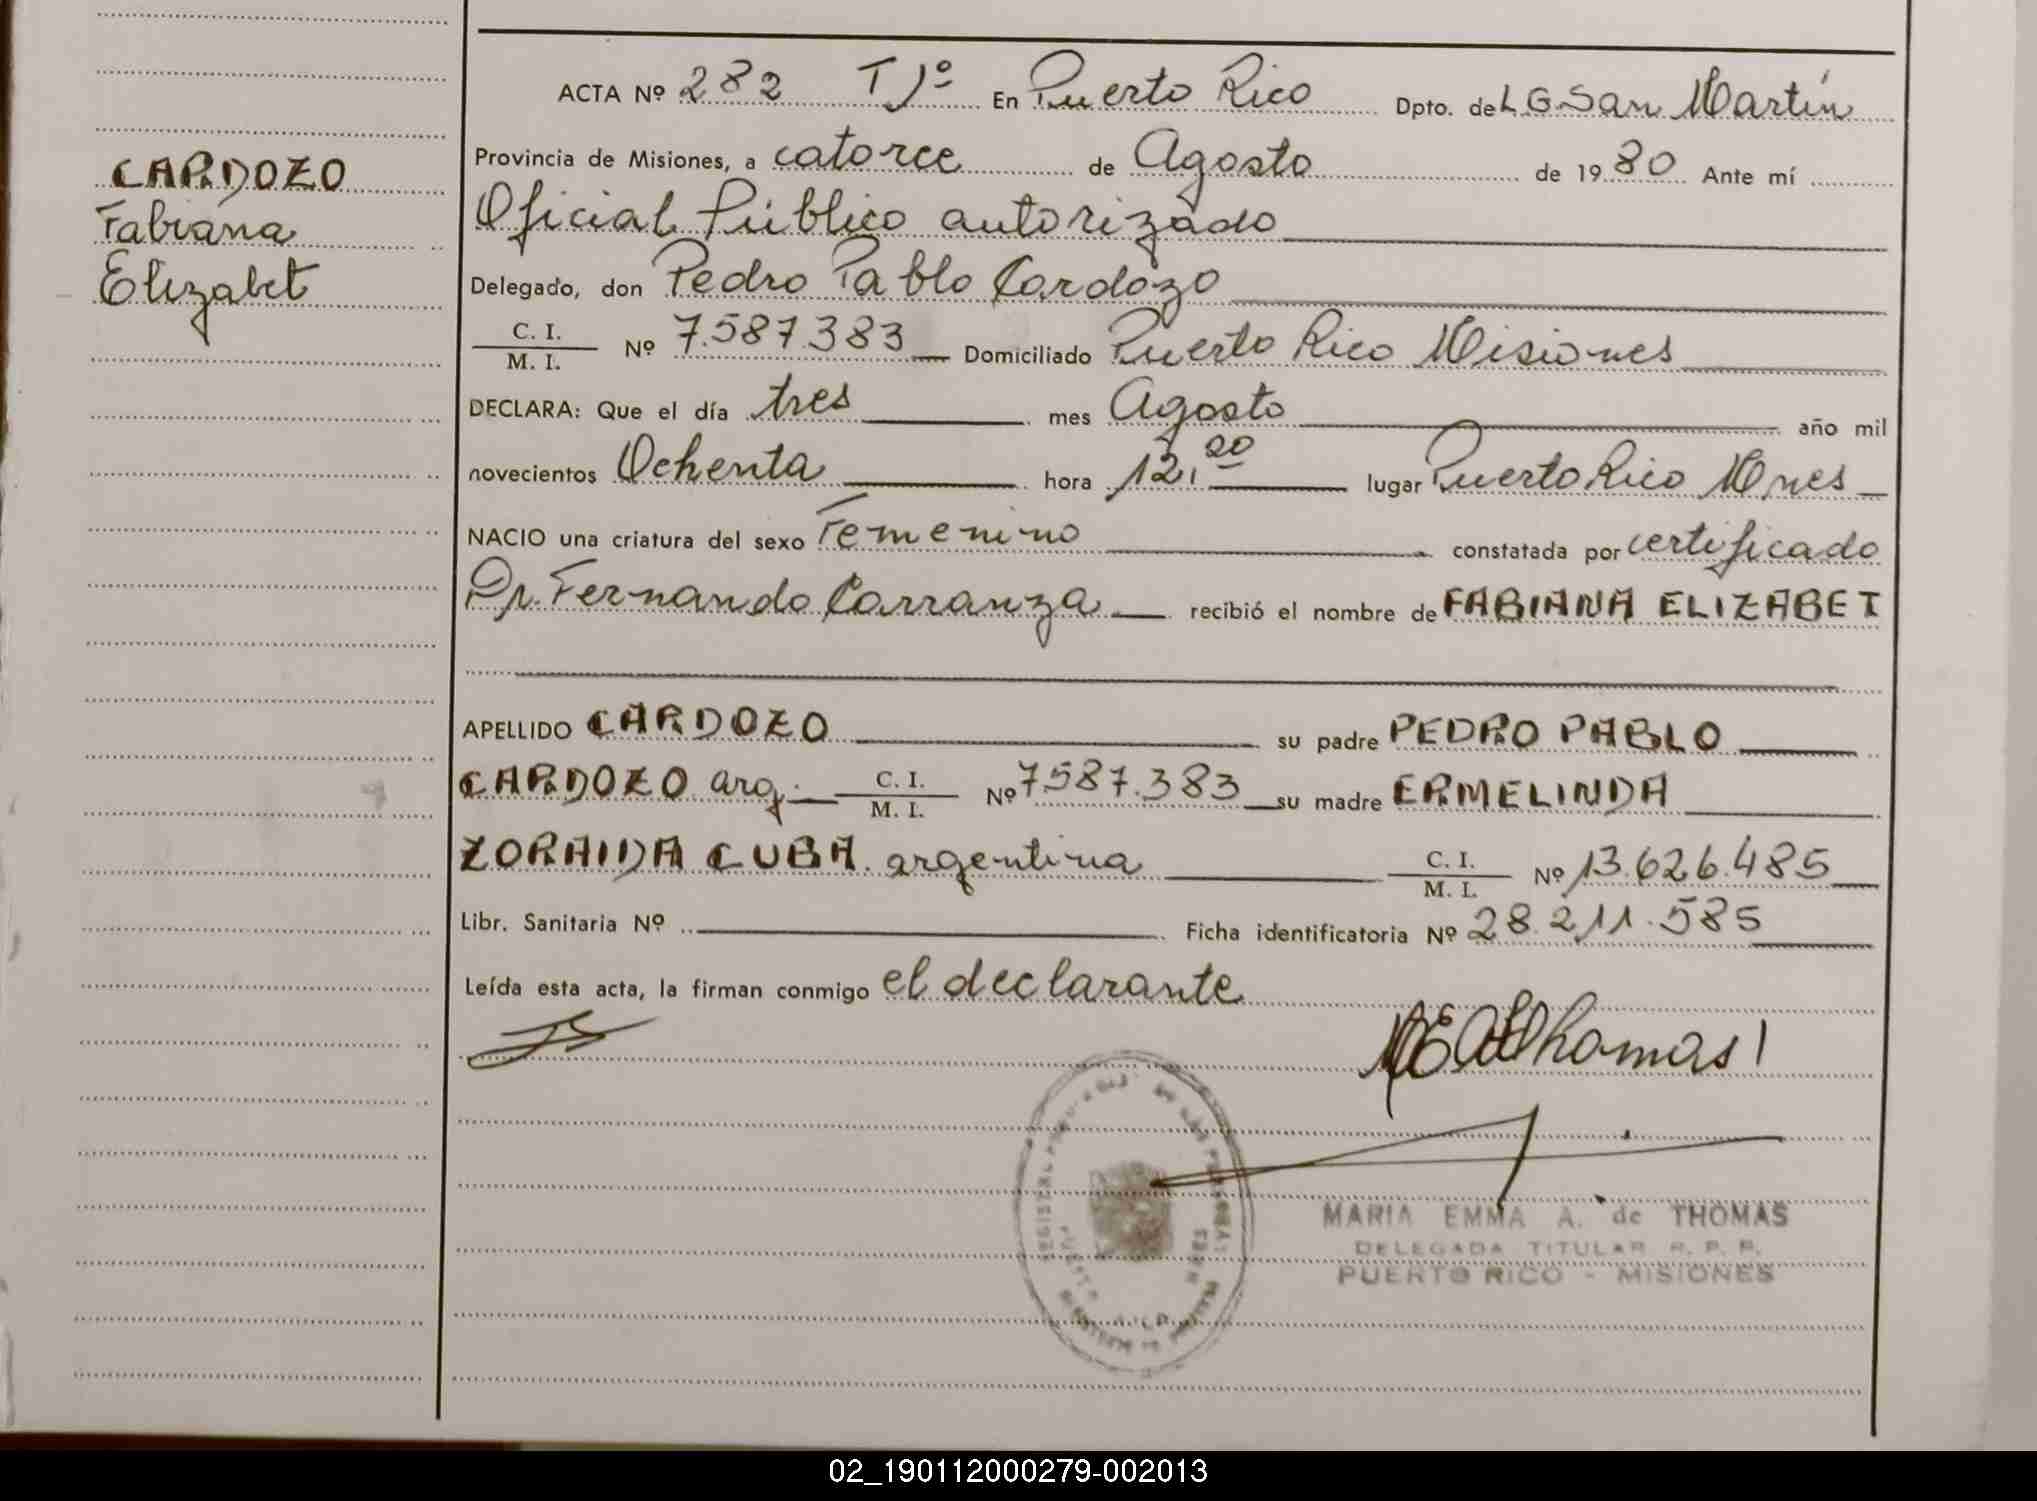 CARDOZO
Fabiana
Elizabet
ACTA Nº 282 Tº Iº En Puerto Rico Dpto. de L G San Martín
Provincia de Misiones, a catorce de Agosto de 1980 Ante mí
Oficial Público autorizado
Delegado, don Pedro Pablo Cardozo
C. I.
M. I.
Nº 7.587.383 Domiciliado Puerto Rico Misiones
DECLARA: Que el día tres mes Agosto año mil
novecientos Ochenta hora 12,20 lugar Puerto Rico Mnes
NACIO una criatura del sexo Femenino constatada por certificado
Dr. Fernando Carranza recibió el nombre de FABIANA ELIZABET
APELLIDO CARDOZO su padre PEDRO PABLO
CARDOZO arg. C. I. M. I. Nº 7.587.383 su madre ERMELINDA
ZORAIDA CUBA. argentina C. I. M. I. Nº 13.626.485
Libr. Sanitaria Nº Ficha identificatoria Nº 28.211.585
Leída esta acta, la firman conmigo el declarante
Thomas
MARIA EMMA A. de THOMAS
DELEGADA TITULAR R. P. P.
PUERTO RICO - MISIONES
02_190112000279-002013